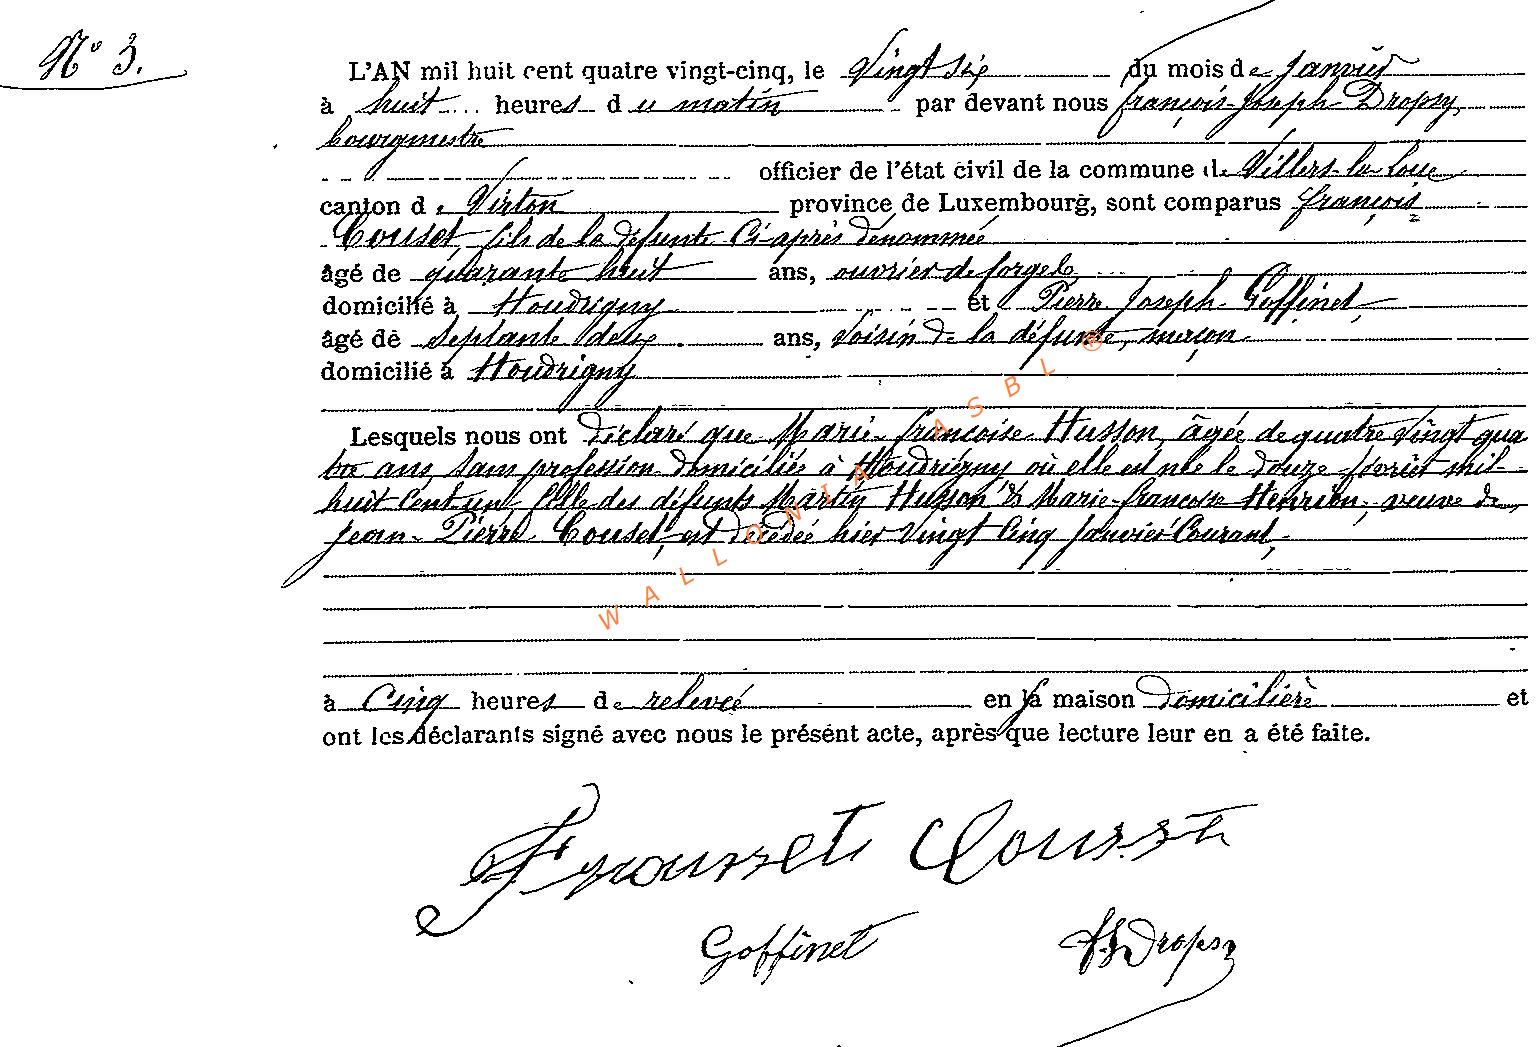 N° 3.
L'AN mil huit cent quatre vingt-cinq, le Vingt Six du mois de Janvier
à huit heures du matin par devant nous françois Joseph Dropsy,
bourgmestre
officier de l'état civil de la commune de Villers-la-Loue
canton de Virton province de Luxembourg, sont comparus françois
Couset, fils de la défunte Ci-après dénommée
âgé de quarante huit ans, ouvrier de forges
domicilié à Houdrigny et Pierre Joseph Goffinet,
âgé de septante deux ans, Voisin de la défunte, maçon
domicilié à Houdrigny
Lesquels nous ont déclaré que Marie-françoise Husson, âgée de quatre Vingt qua
tre ans, Sans profession domiciliée à Houdrigny où elle est née le douze février mil
huit Cent un, fille des défunts Martin Husson & Marie-françoise Henrion, veuve de
Jean-Pierre Couset, est décédée hier Vingt Cinq Janvier Courant,
à Cinq heures de relevée en sa maison domicilière et
ont les déclarants signé avec nous le présent acte, après que lecture leur en a été faite.
Goffinet Dropsy
WALLONIA ASBL ®